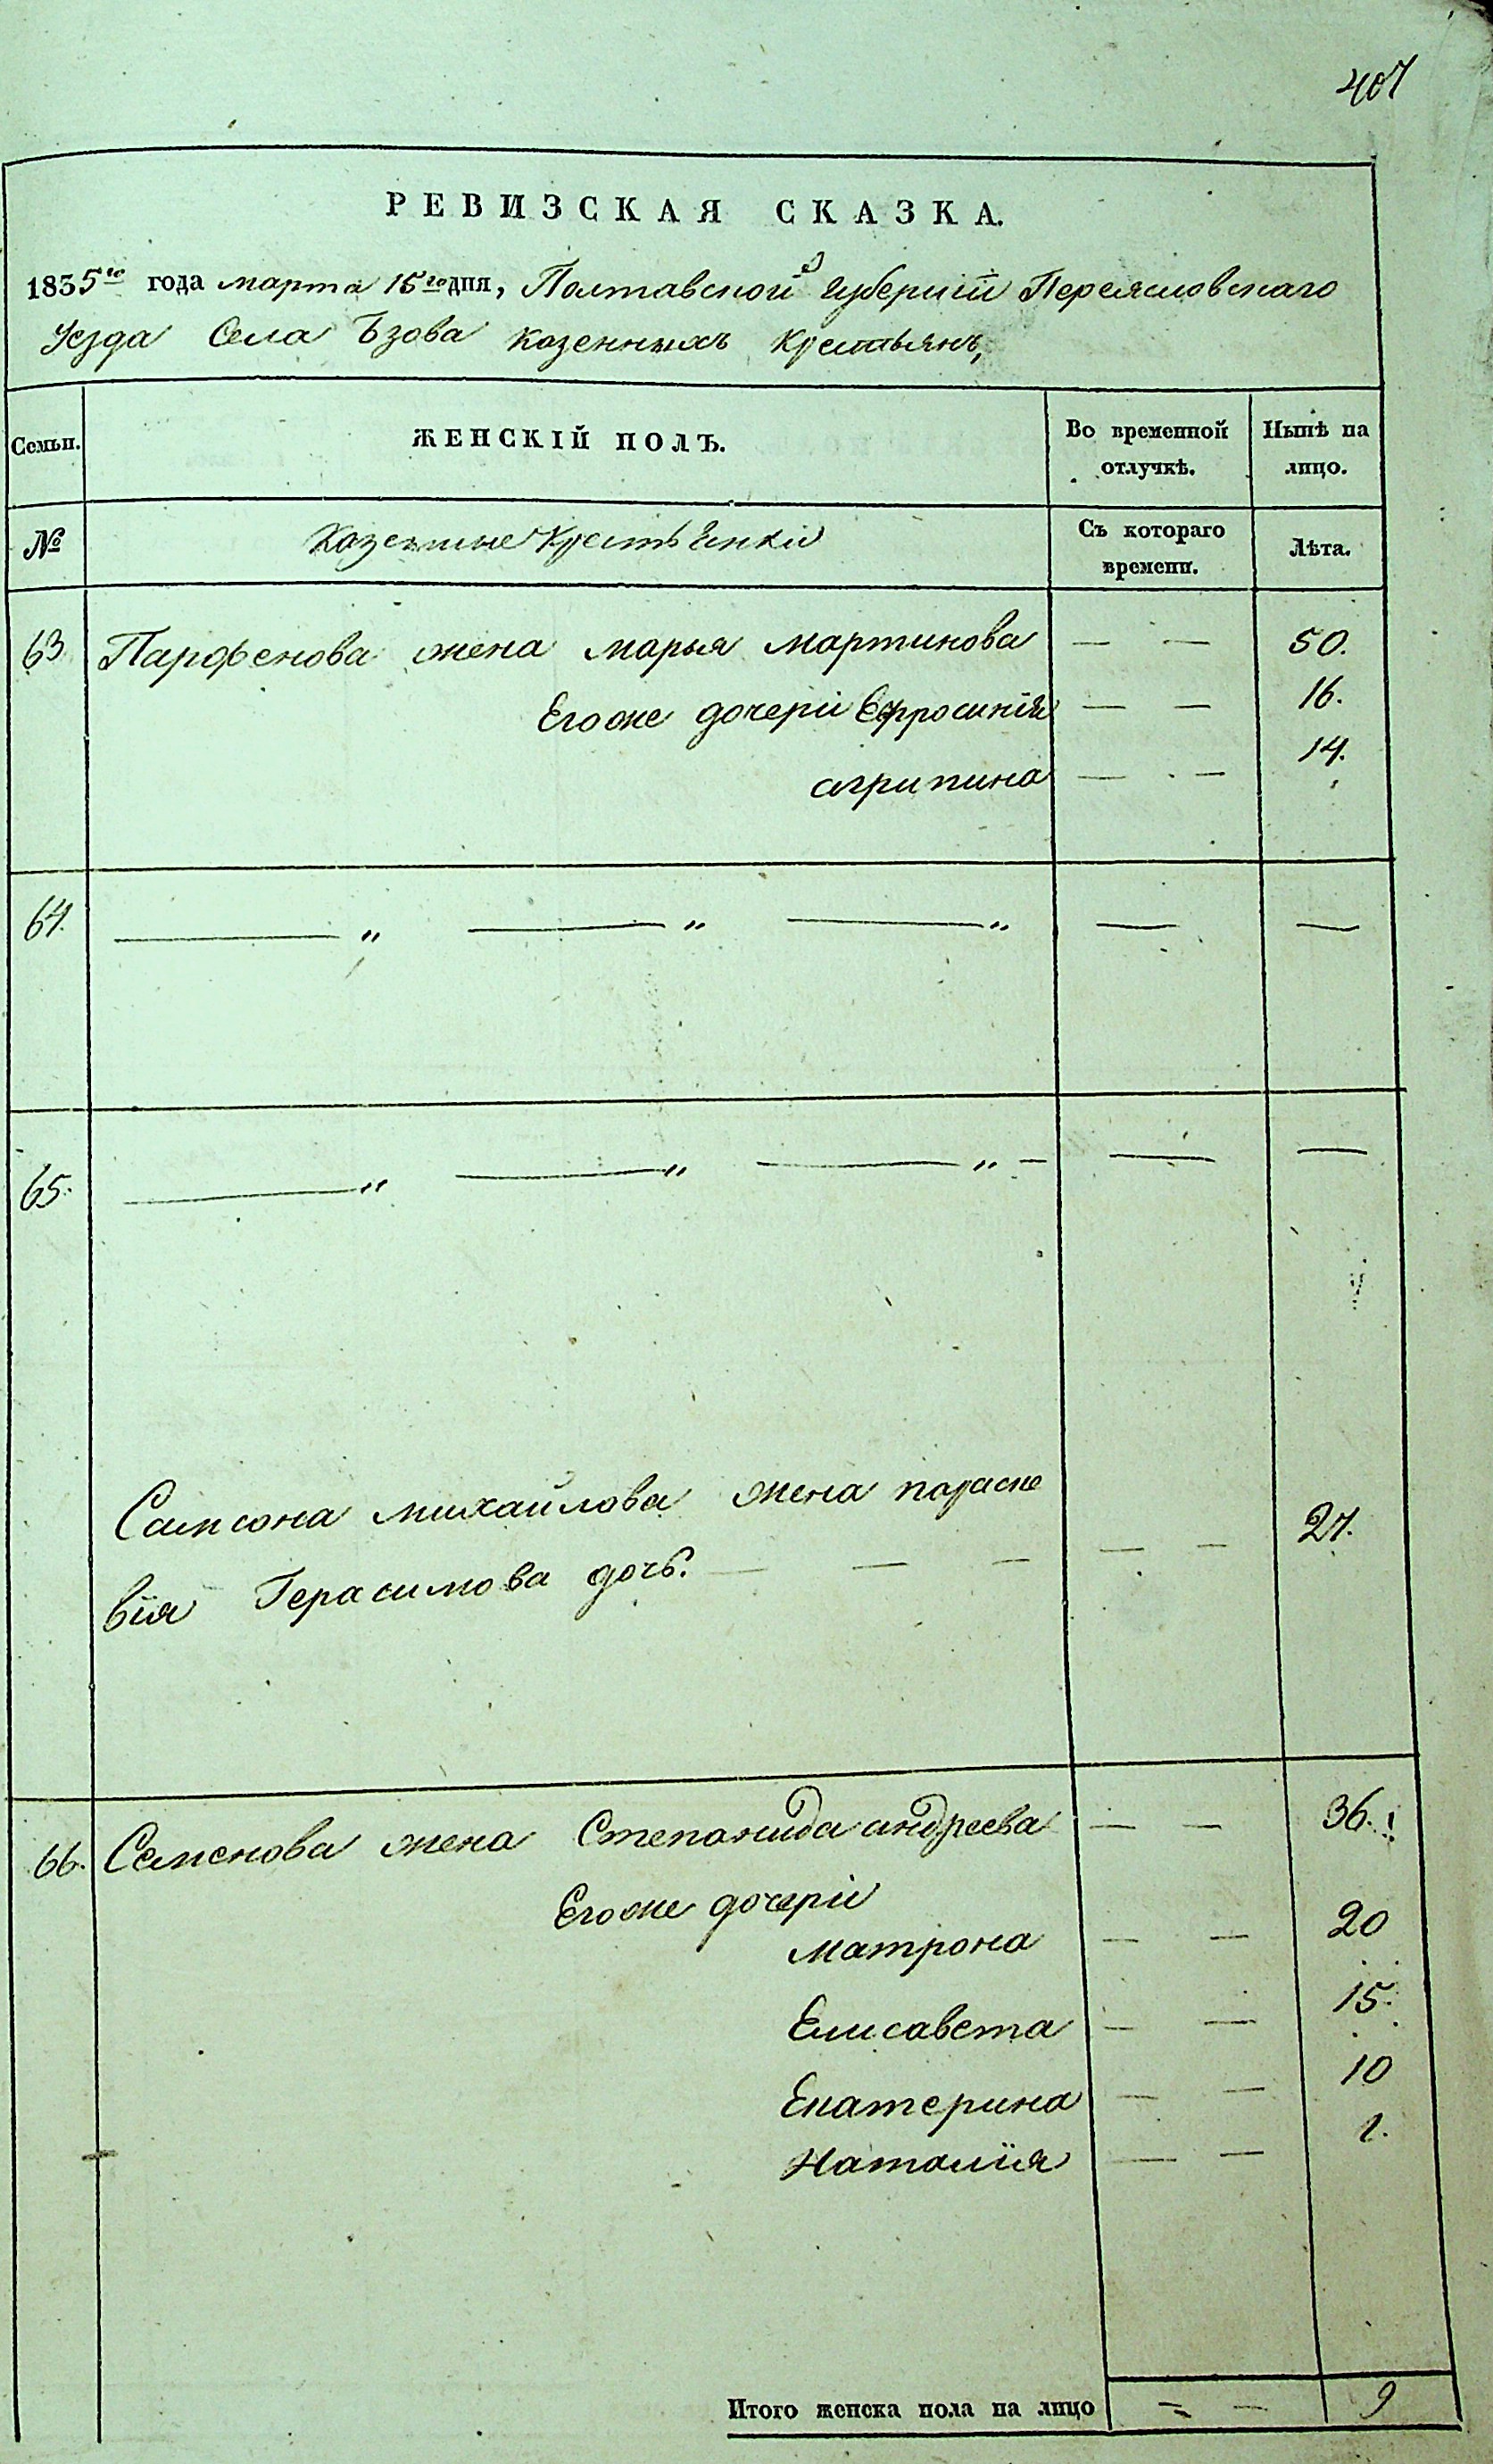 407
РЕВИЗСКАЯ СКАЗКА.
1835го года марта 15го дня, Полтавской Губернии Переясловскаго
Уезда Села Ѣзова казенныхъ крестьянъ,
Семьи. ЖЕНСКІЙ ПОЛЪ. Во временной отлучкѣ. Нынѣ на лицо.
№ Казенные крестьянки Съ котораго времени. Лѣта.
63 Парфенова жена марья мартинова — — 50.
Егоже дочери Ефросинія — — 16.
агрипина — — 14.
64. — „ — „ — „ — —
65. — „ — „ — „ — — —
Самсона михайлова жена параске
вія Герасимова дочь. — — — — — 27.
66. Семенова жена Степанида андреева — — 36.
Егоже дочери
матрона — — 20
Елисавета — — 15.
Екатерина — — 10
Наталія — — 1.
Итого женска пола на лицо = — 9